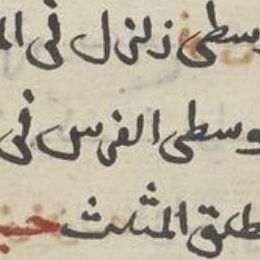 وسطى زلزل فى الم
وسطى الفرس فى
طلق المثلث